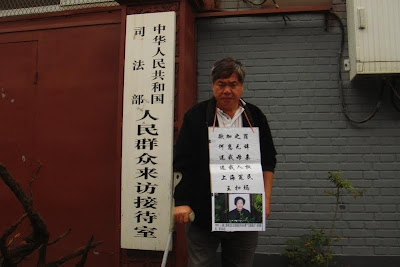 中华人民共和国
司法部
人民群众来访接待室
欲加之罪
何患无辞
还我母亲
还我人权
上海冤民
王扣玛